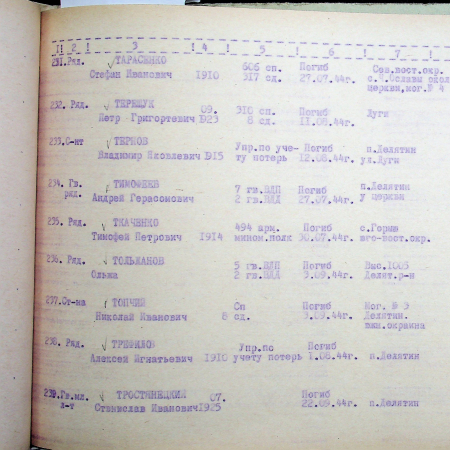 1 2 3 4 5 6 7
231. Ряд. ТАРАСЕНКО 606 сп. Погиб Сев.вост.окр.
Стефан Иванович 1910 317 сд. 27.07.44г.
церкви, мог. № 4
232. Ряд. ТЕРЯЩУК 09. 310 сп. Погиб Луги
Петр Григортевич 1923 8 сд. 11.08.44г.
233. С-нт ТЕРНОВ Упр.по уче- Погиб п.Делятин
Владимир Яковлевич 1915 ту потерь 12.08.44г. ул.Луги
234. Гв. ТИМОФЕЕВ 7 гв.ВДП Погиб п.Делятин
ряд. Андрей Герасомович 2 гв.ВДД 27.07.44г. у церкви
235. Ряд. ТКАЧЕНКО 494 арм. Погиб
Тимофей Петрович 1914 мином.полк 30.07.44г. юго-вост.окр.
236. Ряд. ТОЛЬМАНОВ 5 гв.ВДП Погиб Выс.1003
Олька 2 гв.ВДД 3.09.44г. Делят.р-н
237. Ст-на ТОПЧИЙ Сп Погиб Мог. № 3
Николай Иванович 8 сд. 3.09.44г. Делятин.
юж.окраина
238. Ряд. ТРИФИЛОВ Упр.по Погиб
Алексей Игнатьевич 1910 учету потерь 1.08.44г. п.Делятин
239. Гв.мл. ТРОСТЯНЕЦКИЙ 07. Погиб
л-т Станислав Иванович 1925 22.09.44г. п.Делятин